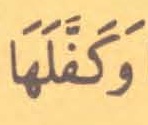 وَكَفَّلَهَا